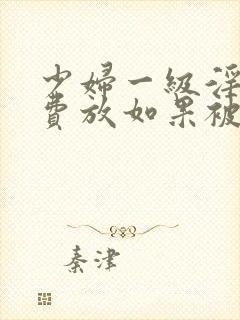 少婦一級淫
費放如果被
秦津